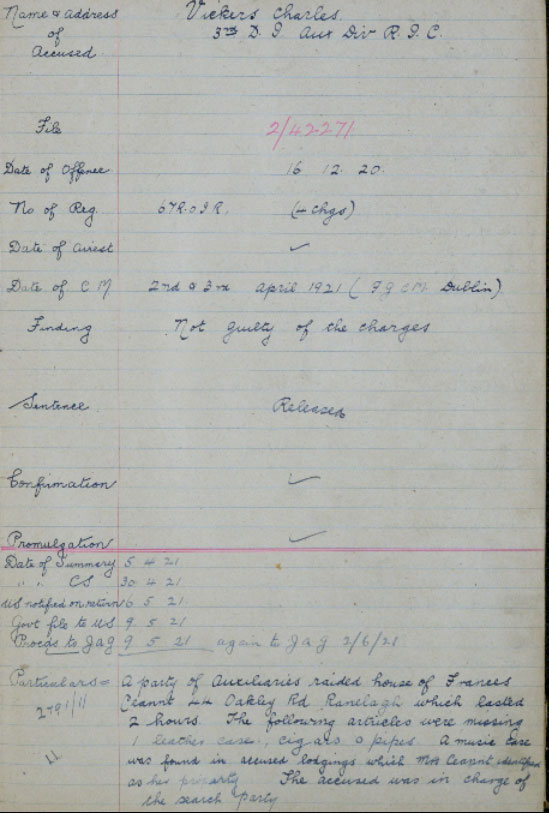 Name & address Vickers Charles.
of 3rd D. I. Aux Div R. I. C.
Accused
File 2/42271
Date of Offence 16 12. 20.
No of Reg. 67R.O I R, (4 chgs)
Date of arrest ✓
Date of C M 2nd & 3rd april 1921 ( F G C M Dublin)
Finding Not guilty of the charges
Sentence Released
Confirmation ✓
Promulgation ✓
Date of Summary 5 4 21
" " CS 30 4 21
US notified on return 6 5 21.
Govt file to US 9 5 21
Procds to Jag 9 5 21 again to JaG 2/6/21
Particulars = A party of Auxiliaries raided house of Frances
Ceannt 44 Oakley Rd Ranelagh which lasted
2 hours. The following articles were missing
1 leather case, cigars & pipes A music case
was found in accused lodgings which Mrs Ceannt identified
as her property The accused was in charge of
the search party